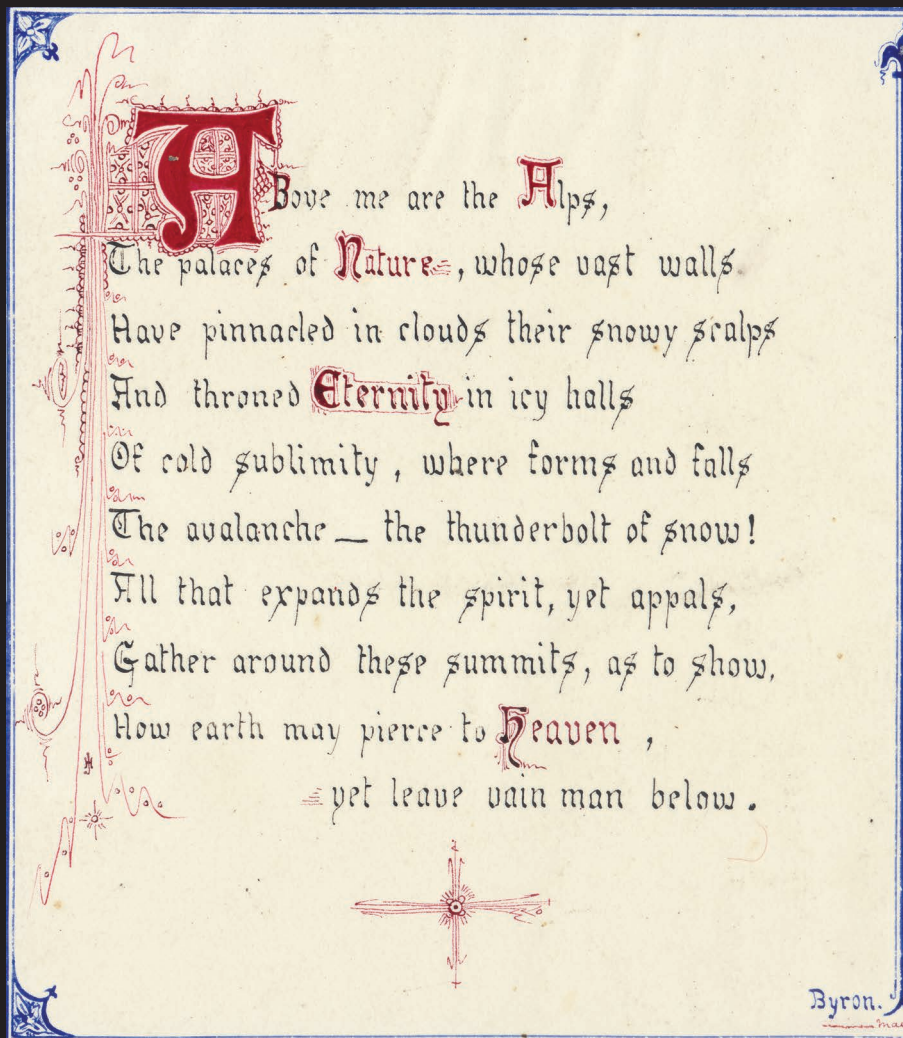 ABove me are the Alps,
The palaces of Nature, whose vast walls
Have pinnacled in clouds their snowy scalps
And throned Eternity in icy halls
Of cold sublimity, where forms and falls
The avalanche — the thunderbolt of snow!
All that expands the spirit, yet appals,
Gather around these summits, as to show,
How earth may pierce to Heaven,
yet leave vain man below.
Byron.